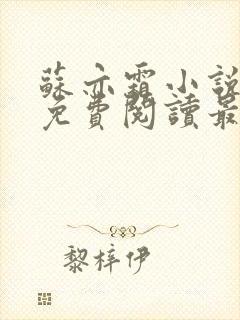 蘇亦霜小說
免費閱讀最
黎梓伊